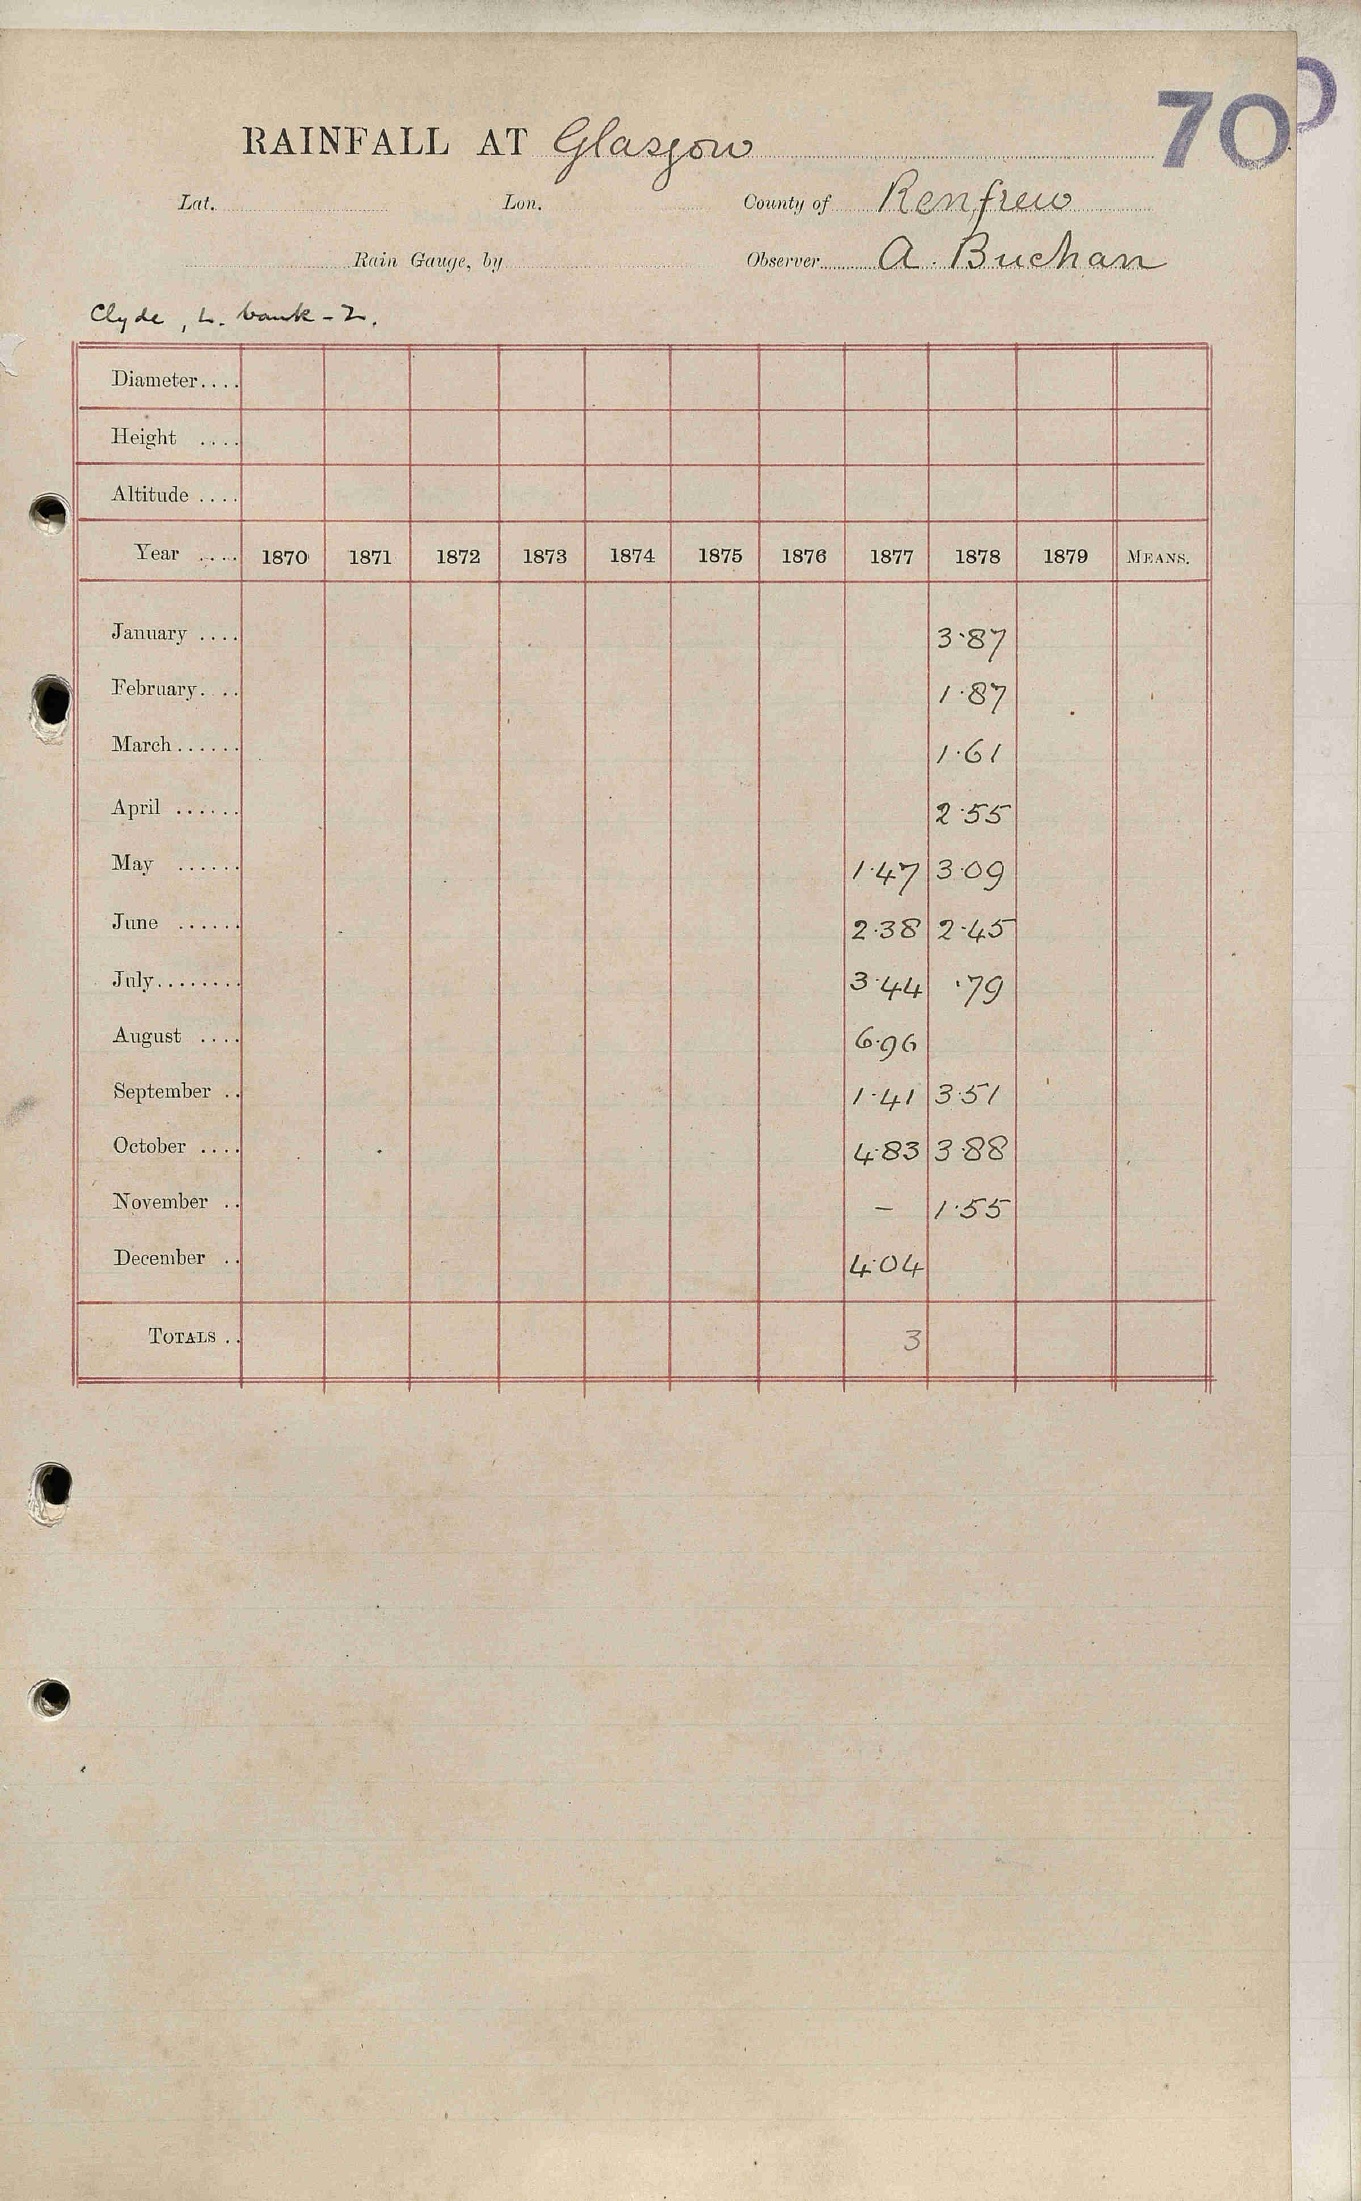 70
RAINFALL AT Glasgow
Lat. Lon. County of Renfrew
Rain Gauge, by Observer A. Buchan
Clyde, L. bank - 2.
Diameter....
Height ....
Altitude ....
Year .... 1870 1871 1872 1873 1874 1875 1876 1877 1878 1879 MEANS.
January .... 3.87
February. .. 1.87
March...... 1.61
April ...... 2.55
May ...... 1.47 3.09
June ...... 2.38 2.45
July........ 3.44 .79
August .... 6.96
September .. 1.41 3.51
October .... 4.83 3.88
November .. - 1.55
December .. 4.04
TOTALS .. 3